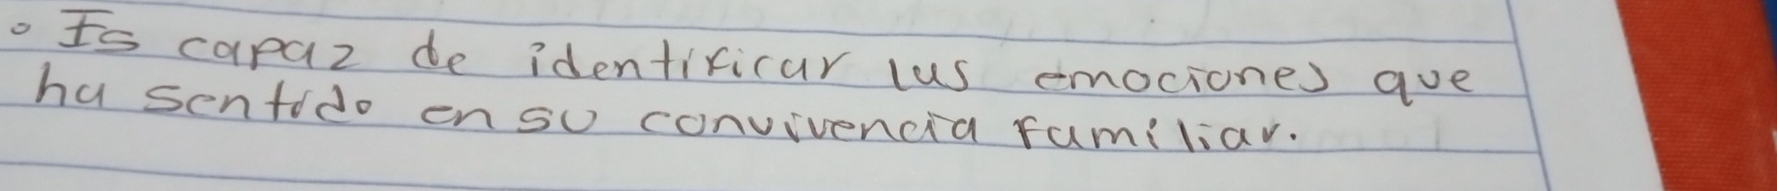 • Es capaz de identificar las emociones que
ha sentido en su convivencia familiar.